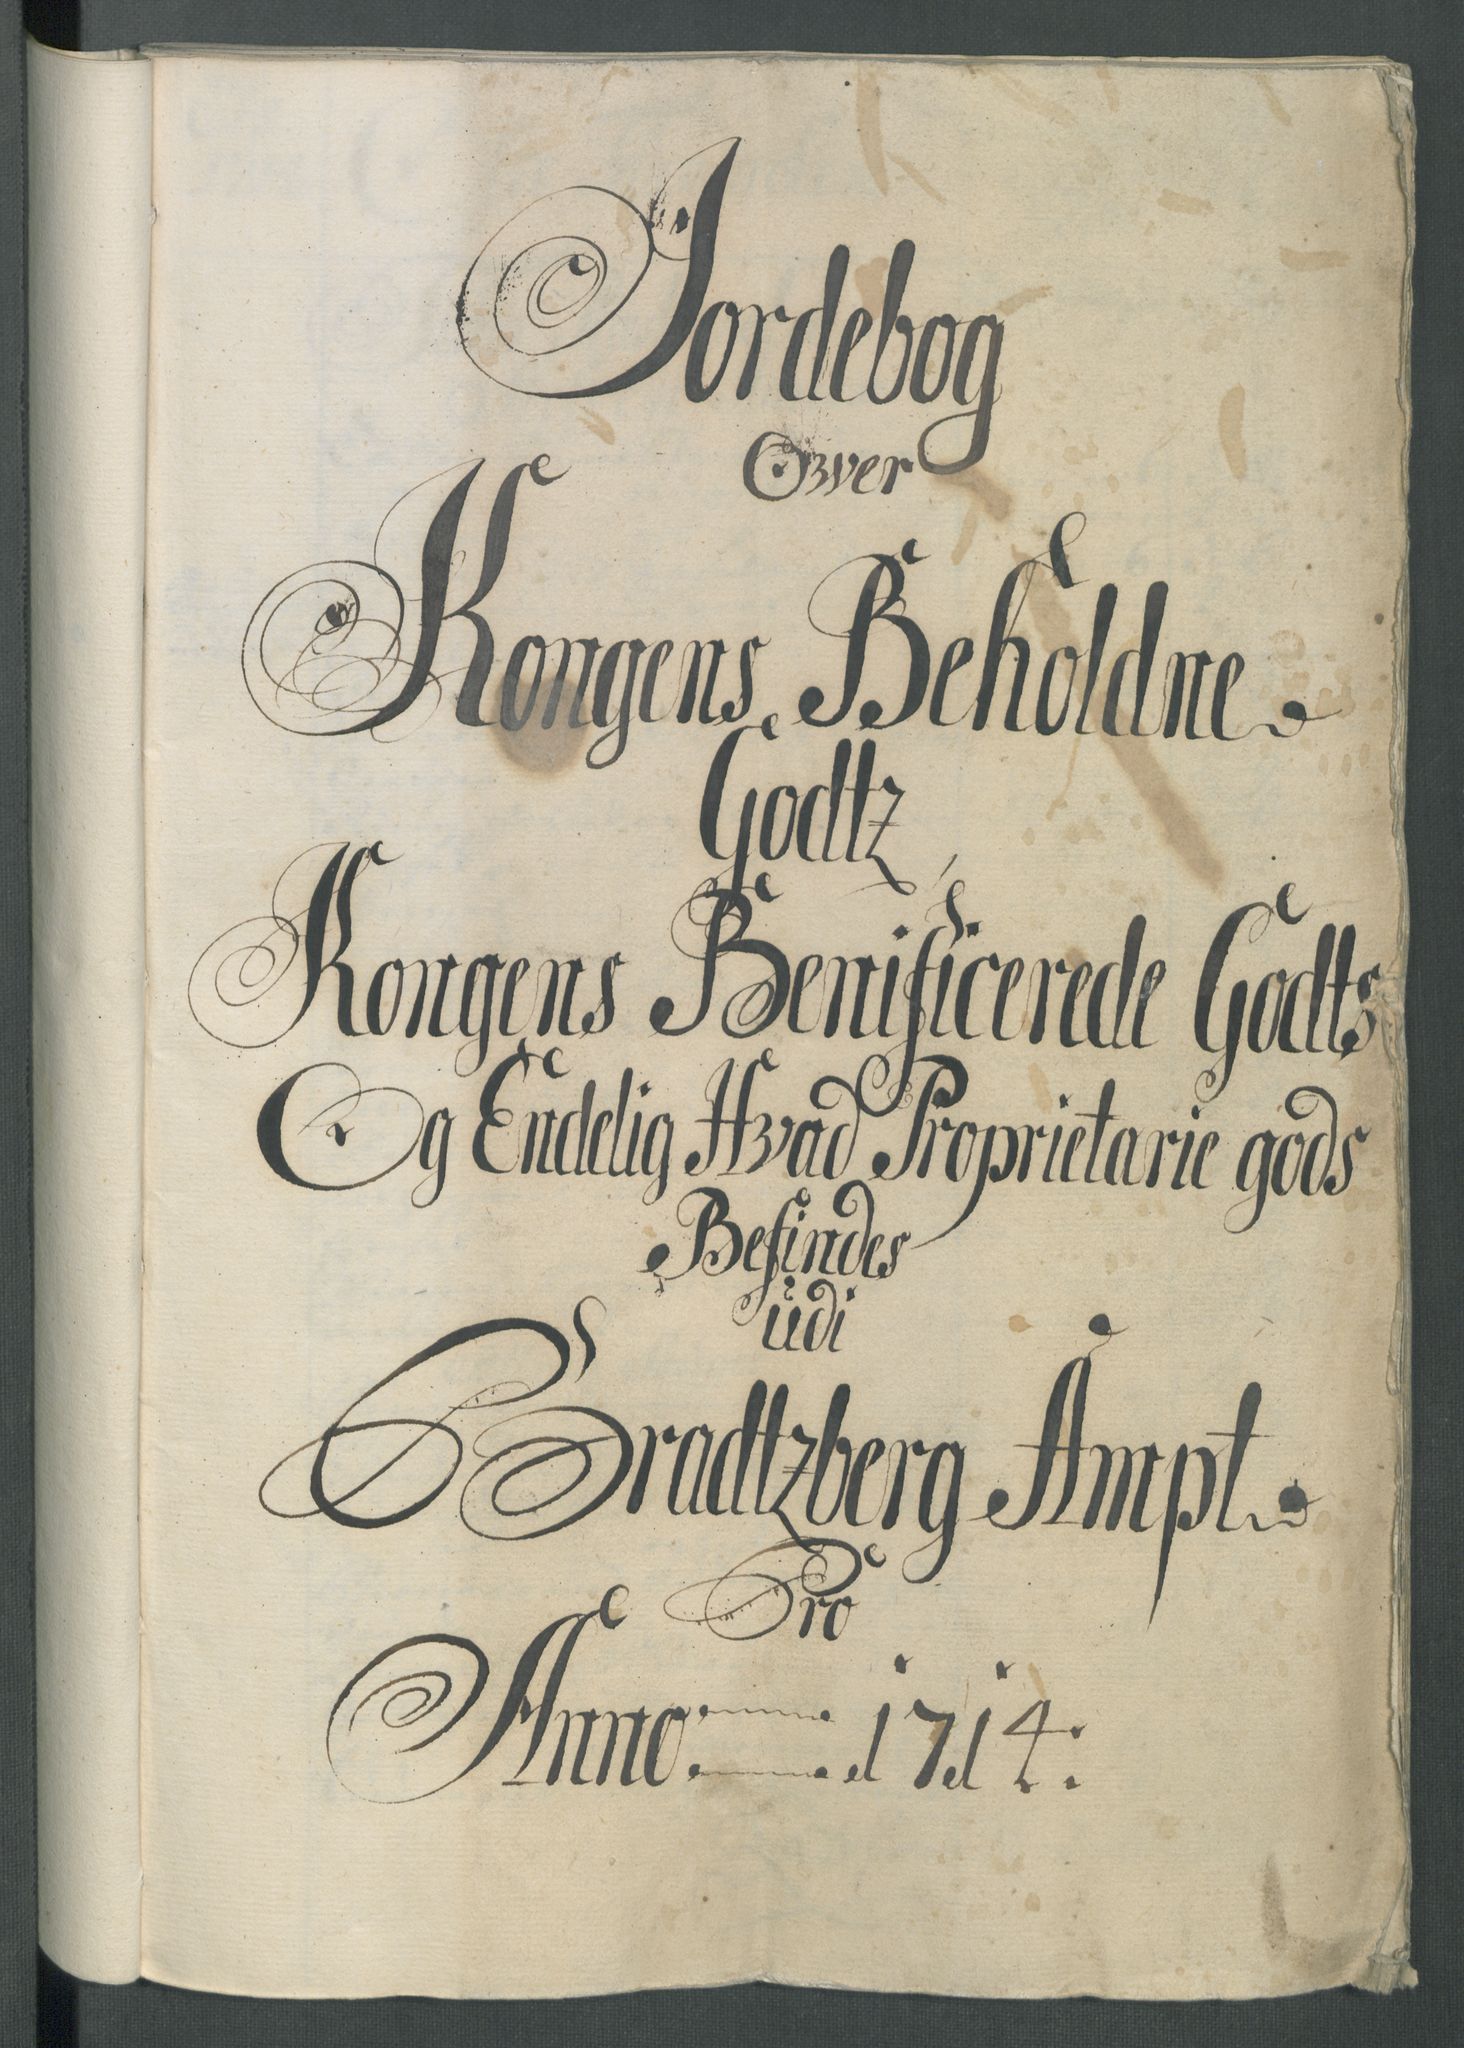 Jordebog
Over
Kongens Beholdne
Godtz
Kongens Benificerede Godts
Og Endelig Hvad Proprietarie gods
Befindes
udi
Bradtzberg Ampt
Pro
Anno 1714: